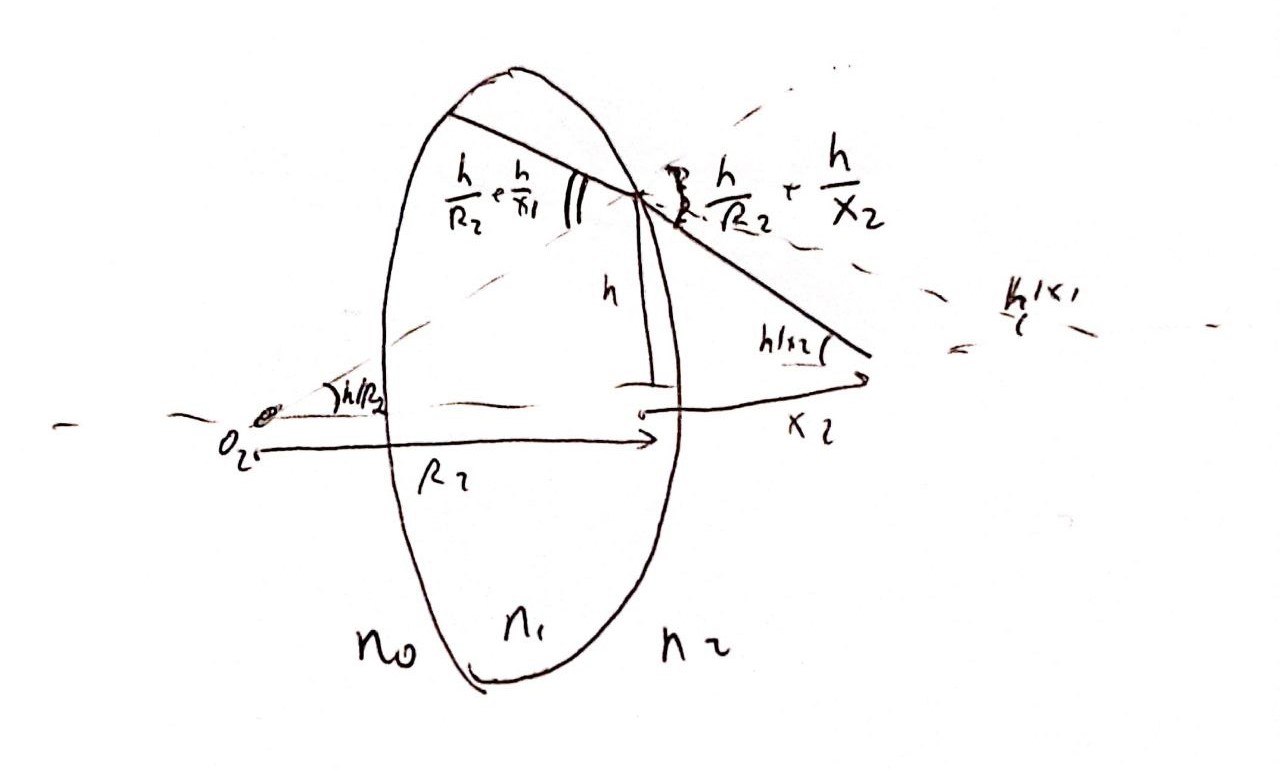 h/R₂ + h/x₁
h/R₂ + h/x₂
h
h/x₁
h/x₂
h/R₂
O₂
x₂
R₂
n₀
n₁
n₂